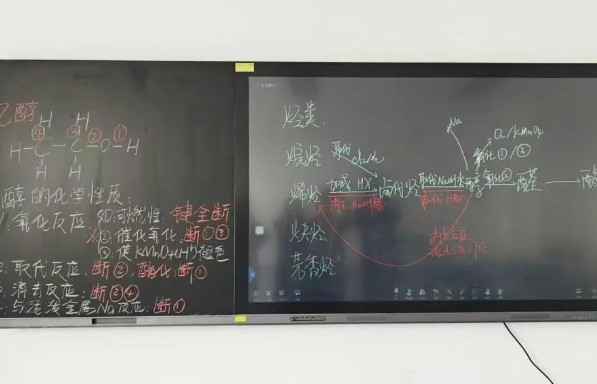 乙醇
H H
④ ③ ② ①
H-C-C-O-H
H H
醇的化学性质:
1.氧化反应:①可燃性 键全断
※②催化氧化,断①③
③使KMnO4(H+)褪色
2.取代反应:断②,酯化:断①
3.消去反应:断②④
4.与活泼金属Na反应:断①
烃类
烷烃 取代
烯烃 加成 HX 卤代烃 取代NaOH水 醇 氧化② 醛
炔烃
芳香烃
Na
O2/KMnO4
氧化①/②
消去 NaOH醇
取代HBr
消去